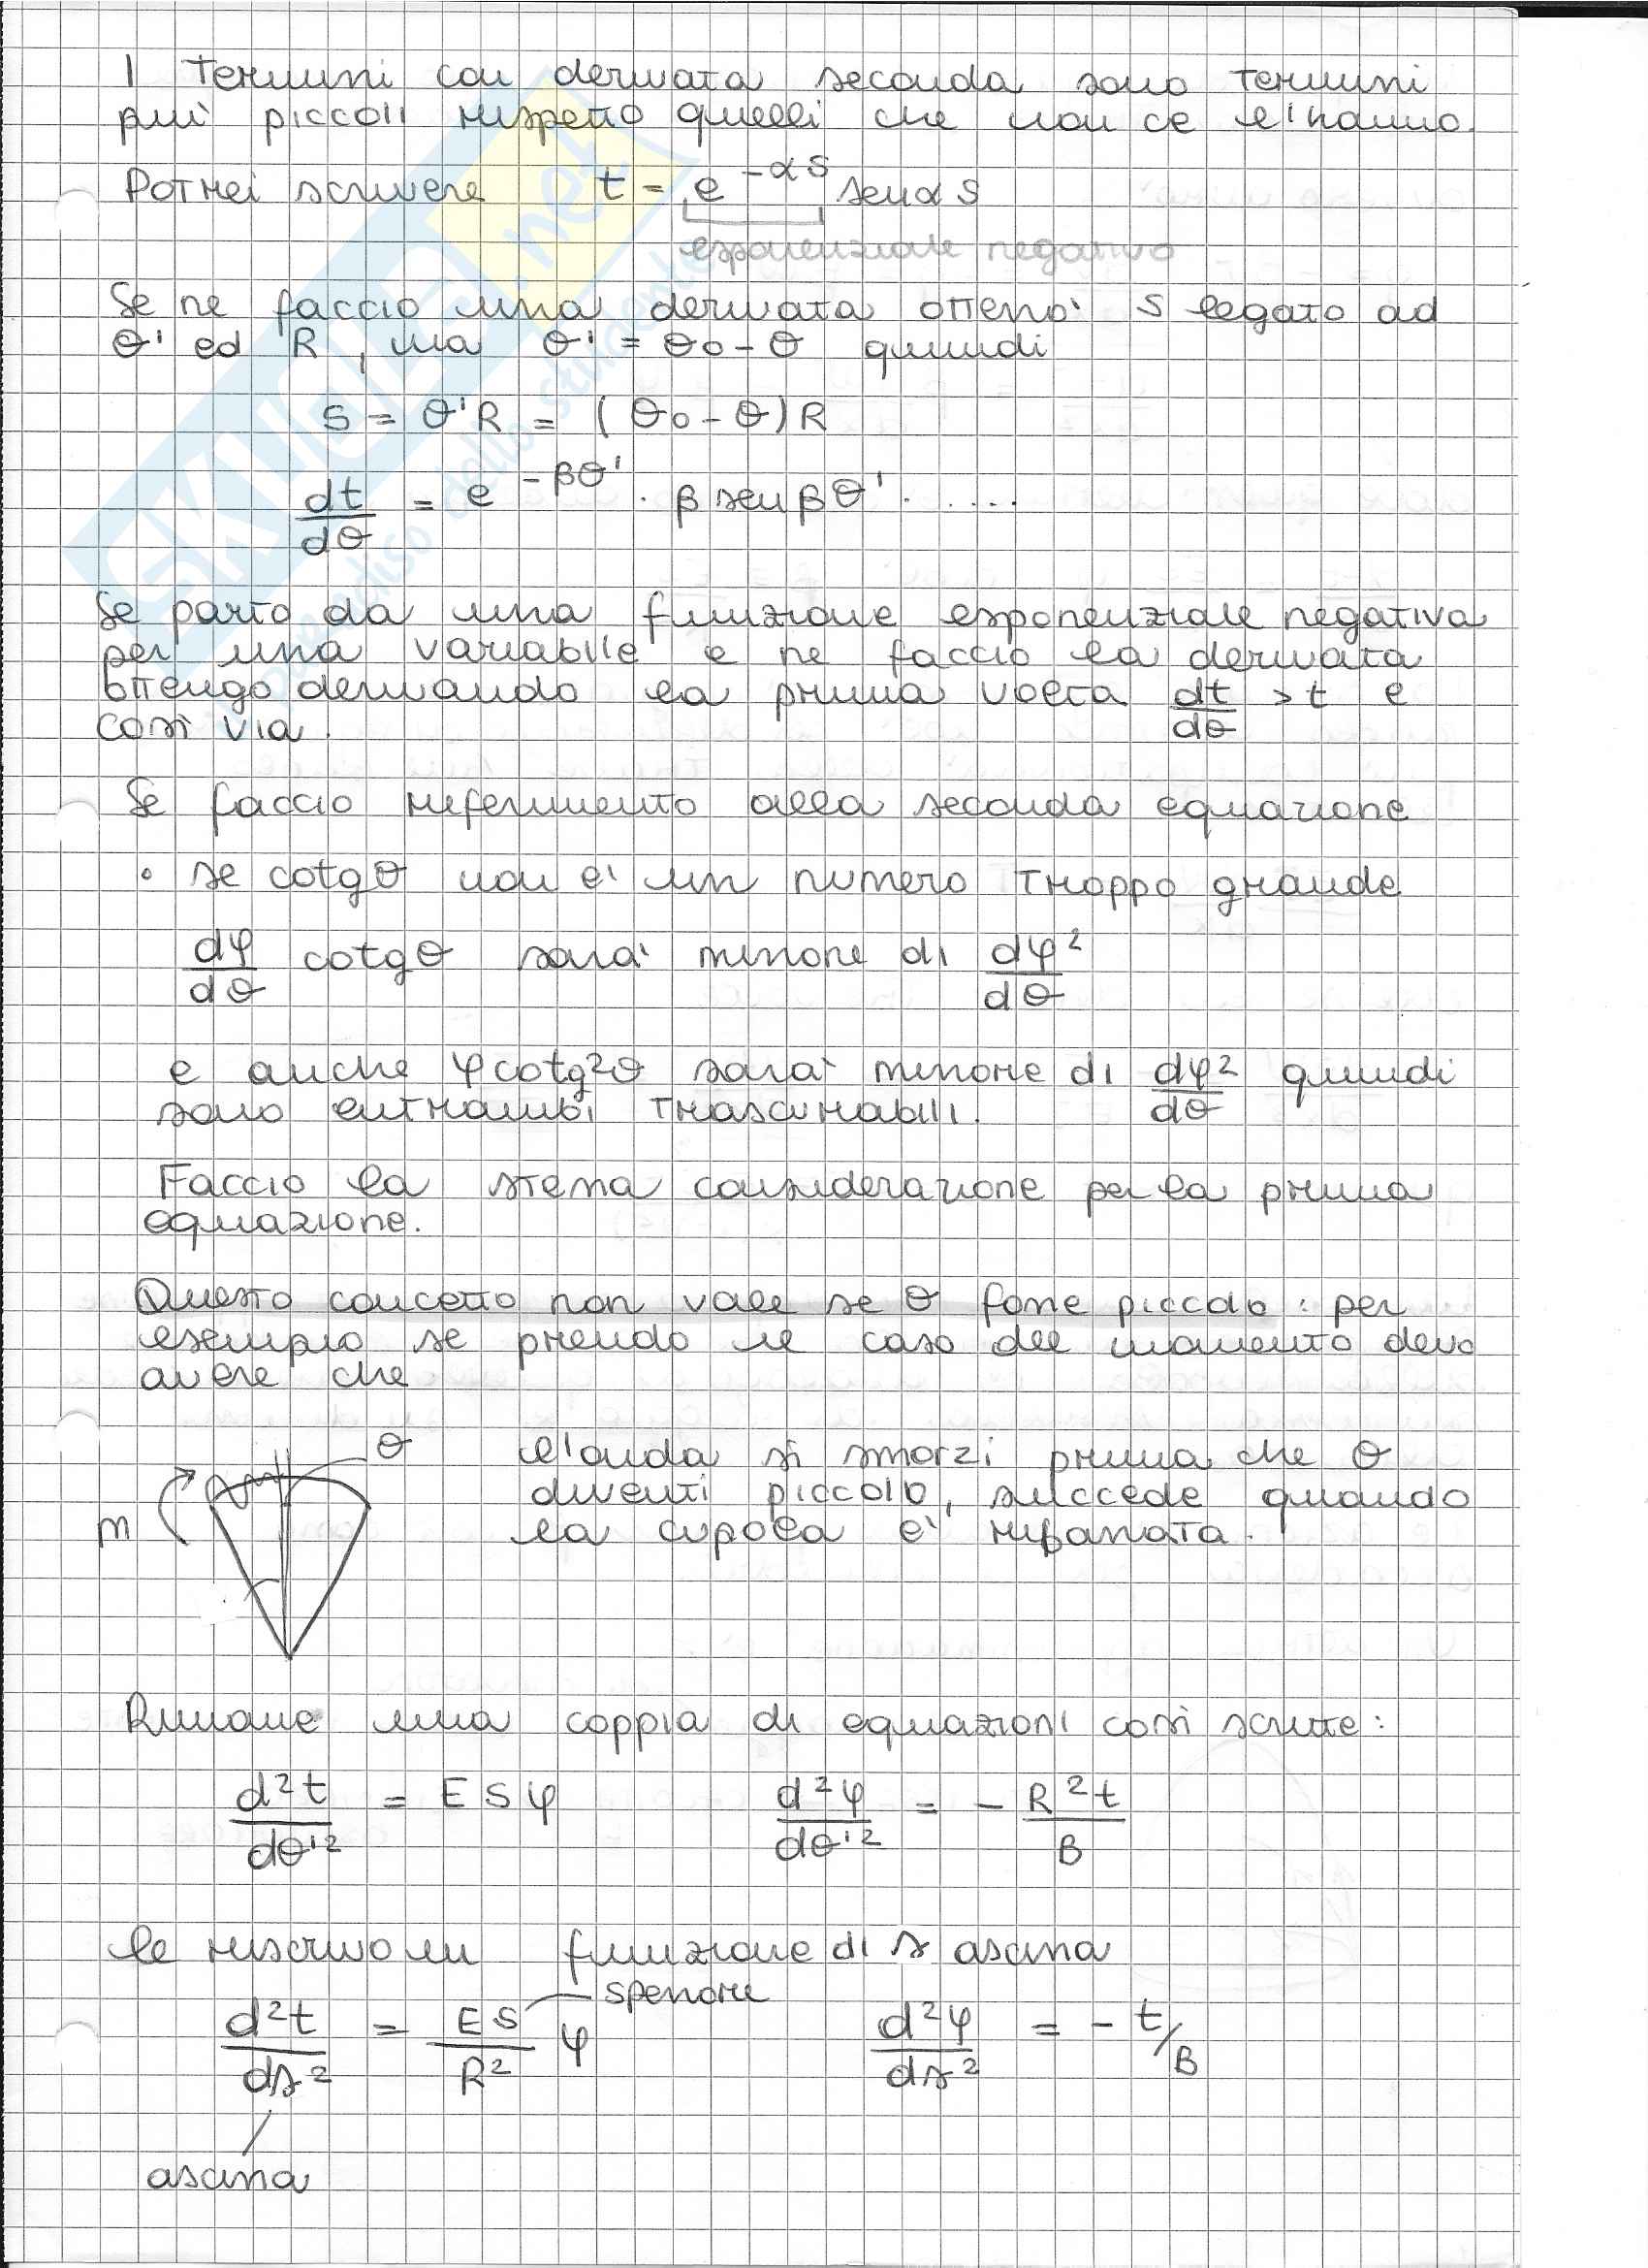 I termini con derivata seconda sono termini
più piccoli rispetto quelli che non ce l'hanno.
Potrei scrivere t = e^{-αs} sen αs
esponenziale negativo
Se ne faccio una derivata otterrò s legato ad
θ' ed R, ma θ' = θ0 - θ quindi
s = θ'R = (θ0 - θ)R
dt/dθ = e^{-βθ'} · β sen βθ' · ....
Se parto da una funzione esponenziale negativa
per una variabile e ne faccio la derivata
ottengo derivando la prima volta dt/dθ > t e
così via.
Se faccio riferimento alla seconda equazione
• se cotgθ non è un numero troppo grande
dφ/dθ cotgθ sarà minore di dφ²/dθ
e anche φcotg²θ sarà minore di dφ²/dθ quindi
sono entrambi trascurabili.
Faccio la stessa considerazione per la prima
equazione.
Questo concetto non vale se θ fosse piccolo: per
esempio se prendo il caso del momento devo
avere che
θ
l'onda si smorzi prima che θ
diventi piccolo, succede quando
la cupola è ribassata.
m
Rimane una coppia di equazioni così scritte:
d²t/dθ'² = ESφ d²φ/dθ'² = - R²t/B
le riscrivo in funzione di s ascissa
spessore
d²t/ds² = ES/R² φ d²φ/ds² = - t/B
ascissa
SKUOLA.net
paradiso dello studente